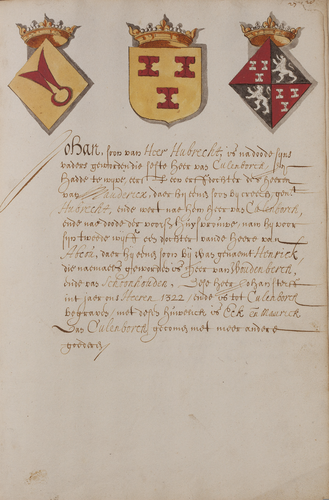 Johan, soon van Heer Hubrecht, is na doode sijns
vaders geworden die seste heer van Culenborch, hij
hadde te wijve, eerst een erfdochter des heeren
van Maurick, daer hij eenen soon bij creech, genaemt
Hubrecht, ende wert na hem heer van Culenborch,
ende na doode der voors. huijsvrouwe, nam hij voor
sijn tweede wijff een dochter vande heere van
daer hij eenen soon bij was genaemt Henrick
die naemaels geworden is heer van Woudenberch,
ende van Schoonhouden, Dese heer Johan sterff
int jaer ons Heeren 1322 / ende is tot Culenborch
begraven / met desen huwelick is Eck en Maurick
aen Culenborch gecomen met meer andere
goederen